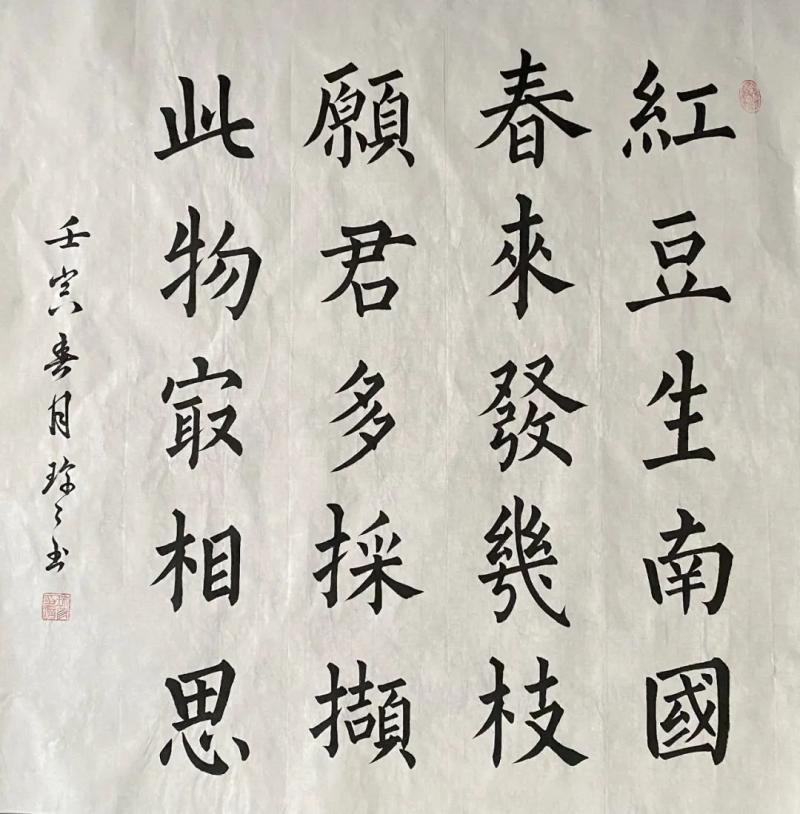 紅豆生南國
春來發幾枝
願君多採擷
此物㝡相思
壬寅春月珍々书